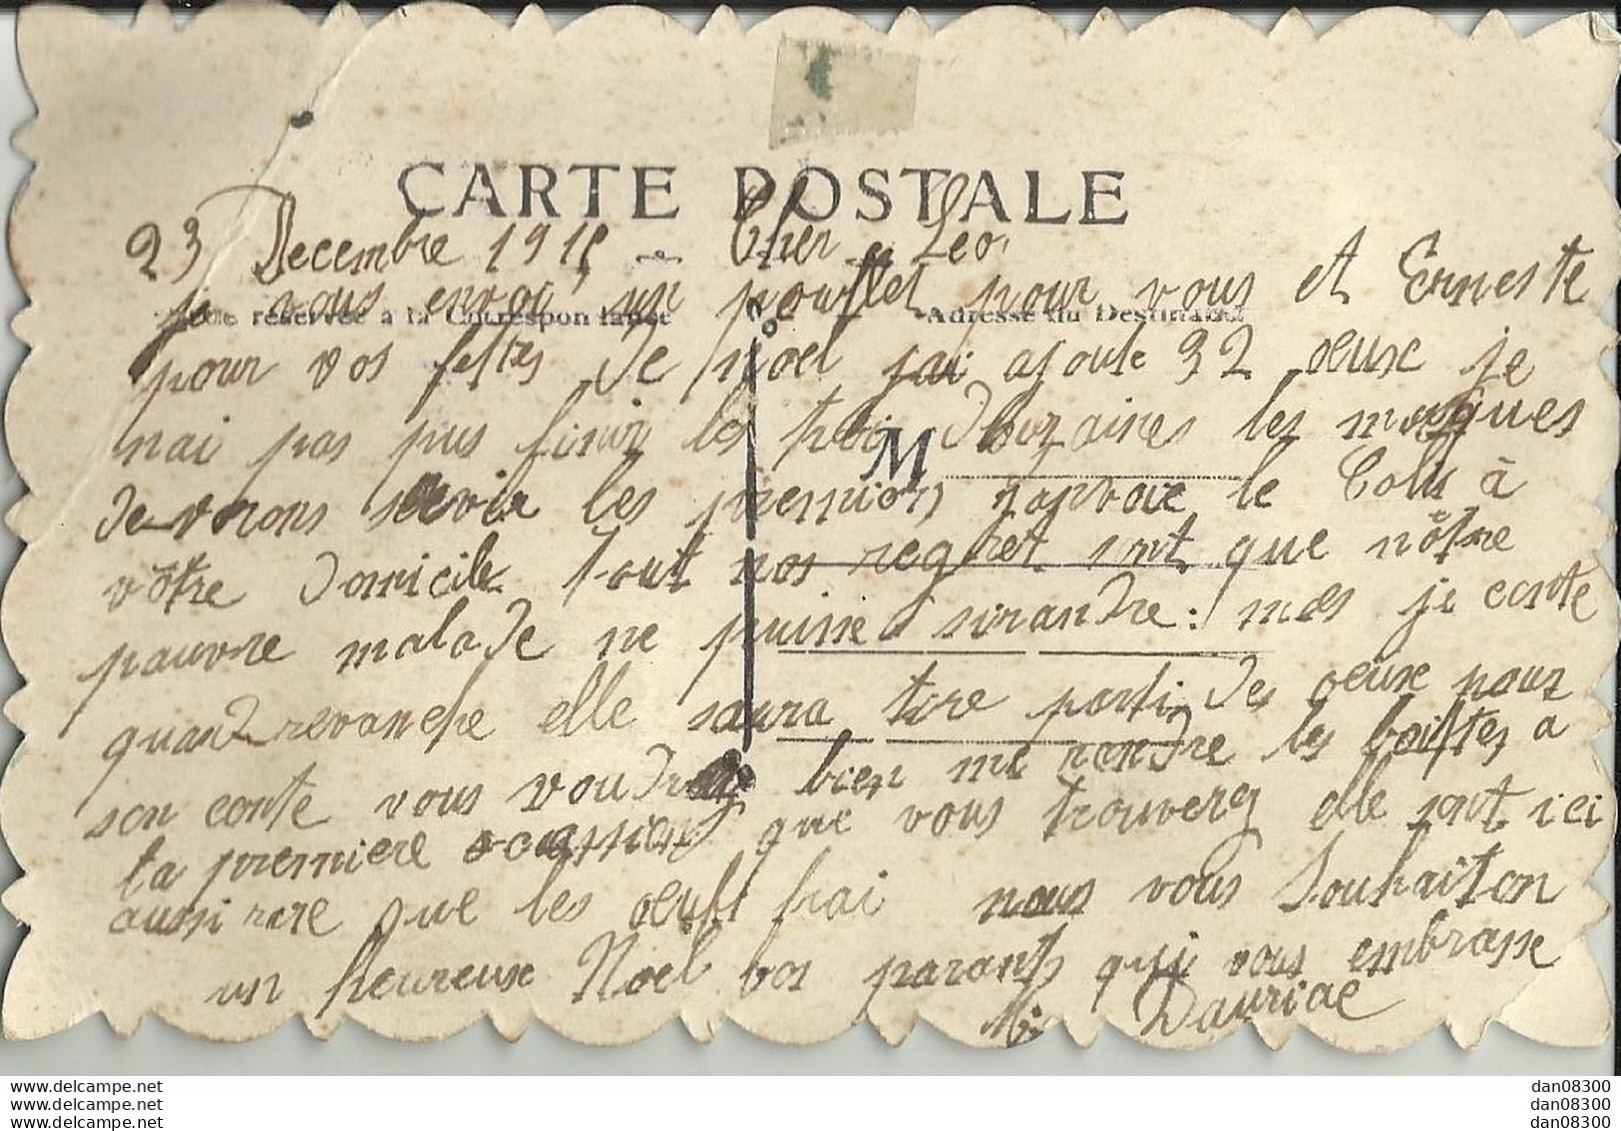 CARTE POSTALE
23 Decembre 191 Cher Leo
je vous envoi un poullet pour vous et Erneste
réservée à la Correspondance
Adresse du Destinataire
pour vos fettes de noel jai ajoute 32 oeuxe je
nai pas pus finir les les
M
les premiers le Colis à
vôtre domicile Tout nos regret sont que nôtre
pauvre malade ne puisse si randre: mes je conte
quand revanche elle saura tire parti des oeuxe pour
son conte vous voudrez bien me rendre les boittes a
la premiere ocassiens que vous trouverez elle sont ici
aussi rare que les oeufs frai nous vous Souhaiton
un heureuse Noel vos parants qui vous embrasse
Dauriac
www.delcampe.net
www.delcampe.net
www.delcampe.net
dan08300
dan08300
dan08300